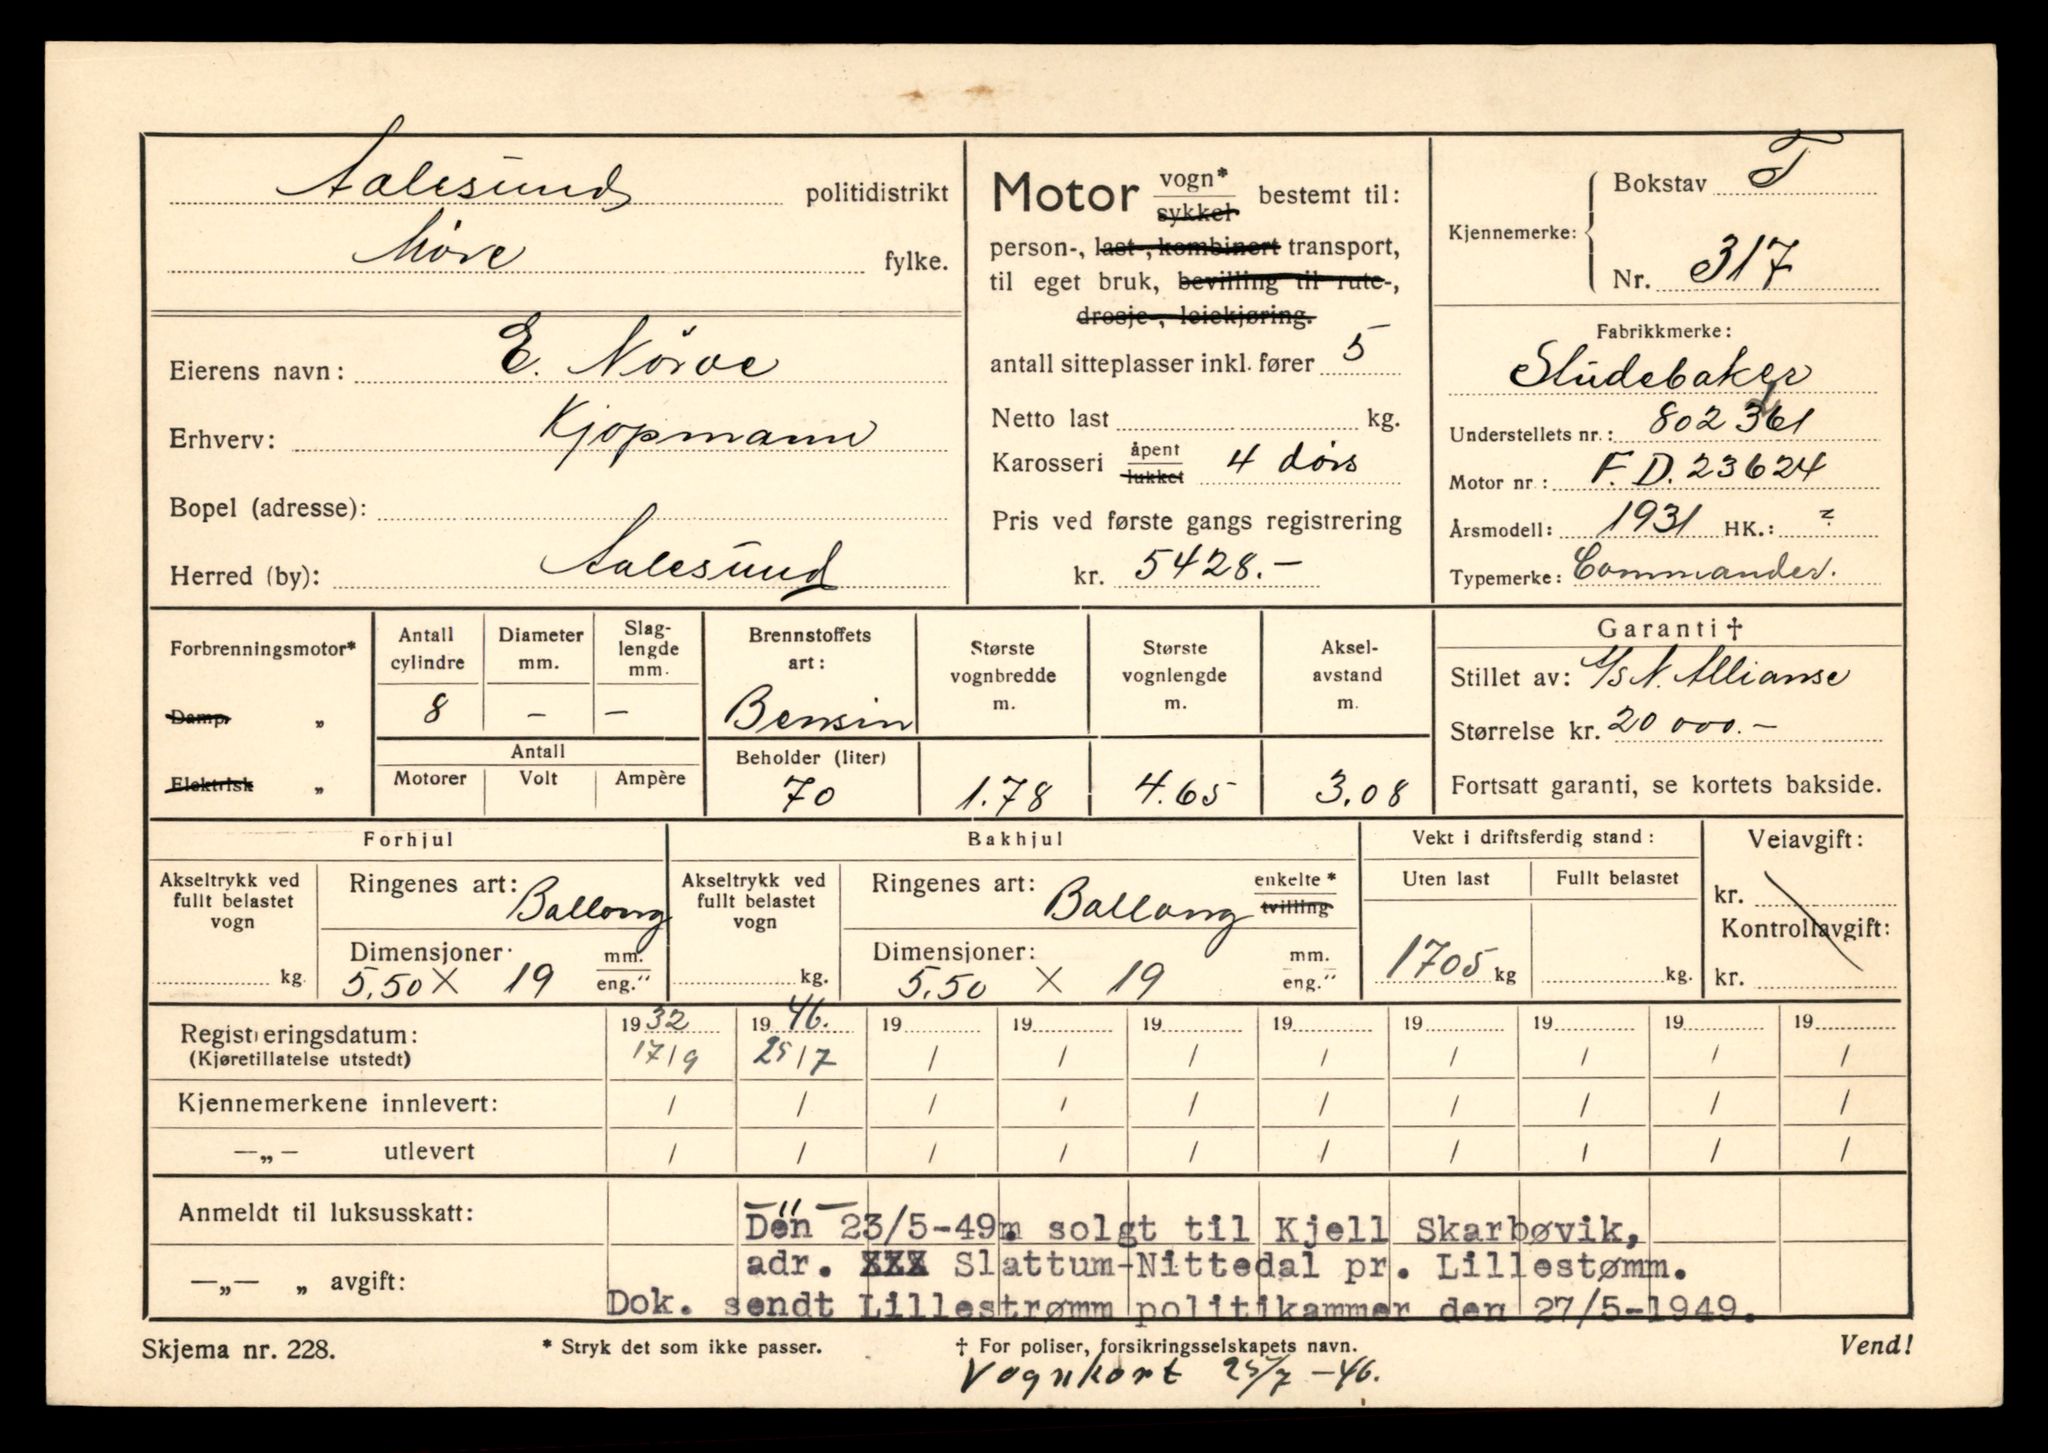 Aalesund politidistrikt
Møre fylke.
Eierens navn: E. Nörve
Erhverv: Kjøpmann
Bopel (adresse):
Herred (by): Aalesund
Motor vogn* sykkel bestemt til:
person-, last-, kombinert transport,
til eget bruk, bevilling til rute-,
drosje-, leiekjøring.
antall sitteplasser inkl. fører 5
Netto last kg.
Karosseri åpent lukket 4 dørs
Pris ved første gangs registrering
kr. 5428.—
Kjennemerke:
Bokstav T
Nr. 317
Fabrikkmerke:
Studebaker
Understellets nr.: 802361
Motor nr: F.D. 23624
Årsmodell: 1931 HK.: ?
Typemerke: Commander.
Forbrenningsmotor*
Damp. „
Elektrisk „
Antall cylindre
8
Diameter mm.
—
Slaglengde mm.
—
Antall
Motorer Volt Ampère
Brennstoffets art:
Bensin
Beholder (liter)
70
Største vognbredde m.
1.78
Største vognlengde m.
4.65
Akselavstand m.
3.08
Garanti †
Stillet av: A/S N. Allianse
Størrelse kr. 20 000.—
Fortsatt garanti, se kortets bakside.
Forhjul
Akseltrykk ved fullt belastet vogn
kg.
Ringenes art: Ballong
Dimensjoner: mm.
5.50 X 19 eng."
Bakhjul
Akseltrykk ved fullt belastet vogn
kg.
Ringenes art: Ballong enkelte* tvilling
Dimensjoner: mm.
5.50 X 19 eng."
Vekt i driftsferdig stand:
Uten last Fullt belastet
1705 kg kg.
Veiavgift:
kr.
Kontrollavgift:
kr.
Registreringsdatum: 1932 1946. 19 19 19 19 19 19 19 19
(Kjøretillatelse utstedt) 17/9 25/7 / / / / / / / /
Kjennemerkene innlevert: / / / / / / / / / /
—„— utlevert / / / / / / / / / /
Anmeldt til luksusskatt: —"—
Den 23/5-49m. solgt til Kjell Skarbøvik,
adr. XXX Slattum-Nittedal pr. Lillestømm.
—„— „ avgift:
Dok. sendt Lillestrømm politikammer den 27/5-1949.
Skjema nr. 228. * Stryk det som ikke passer. † For poliser, forsikringsselskapets navn. Vend!
Vognkort 25/7 -46.